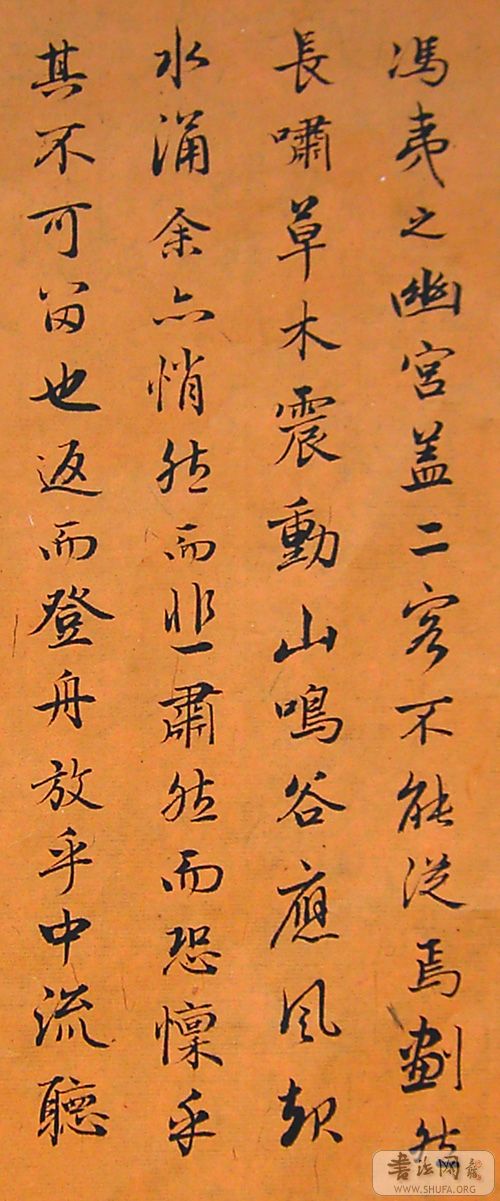 馮夷之幽宮盖二客不能從焉劃然
長嘯草木震動山鳴谷應風起
水涌余亦悄然而悲肅然而恐懔乎
其不可留也返而登舟放乎中流聽
書法网
WWW.SHUFA.ORG